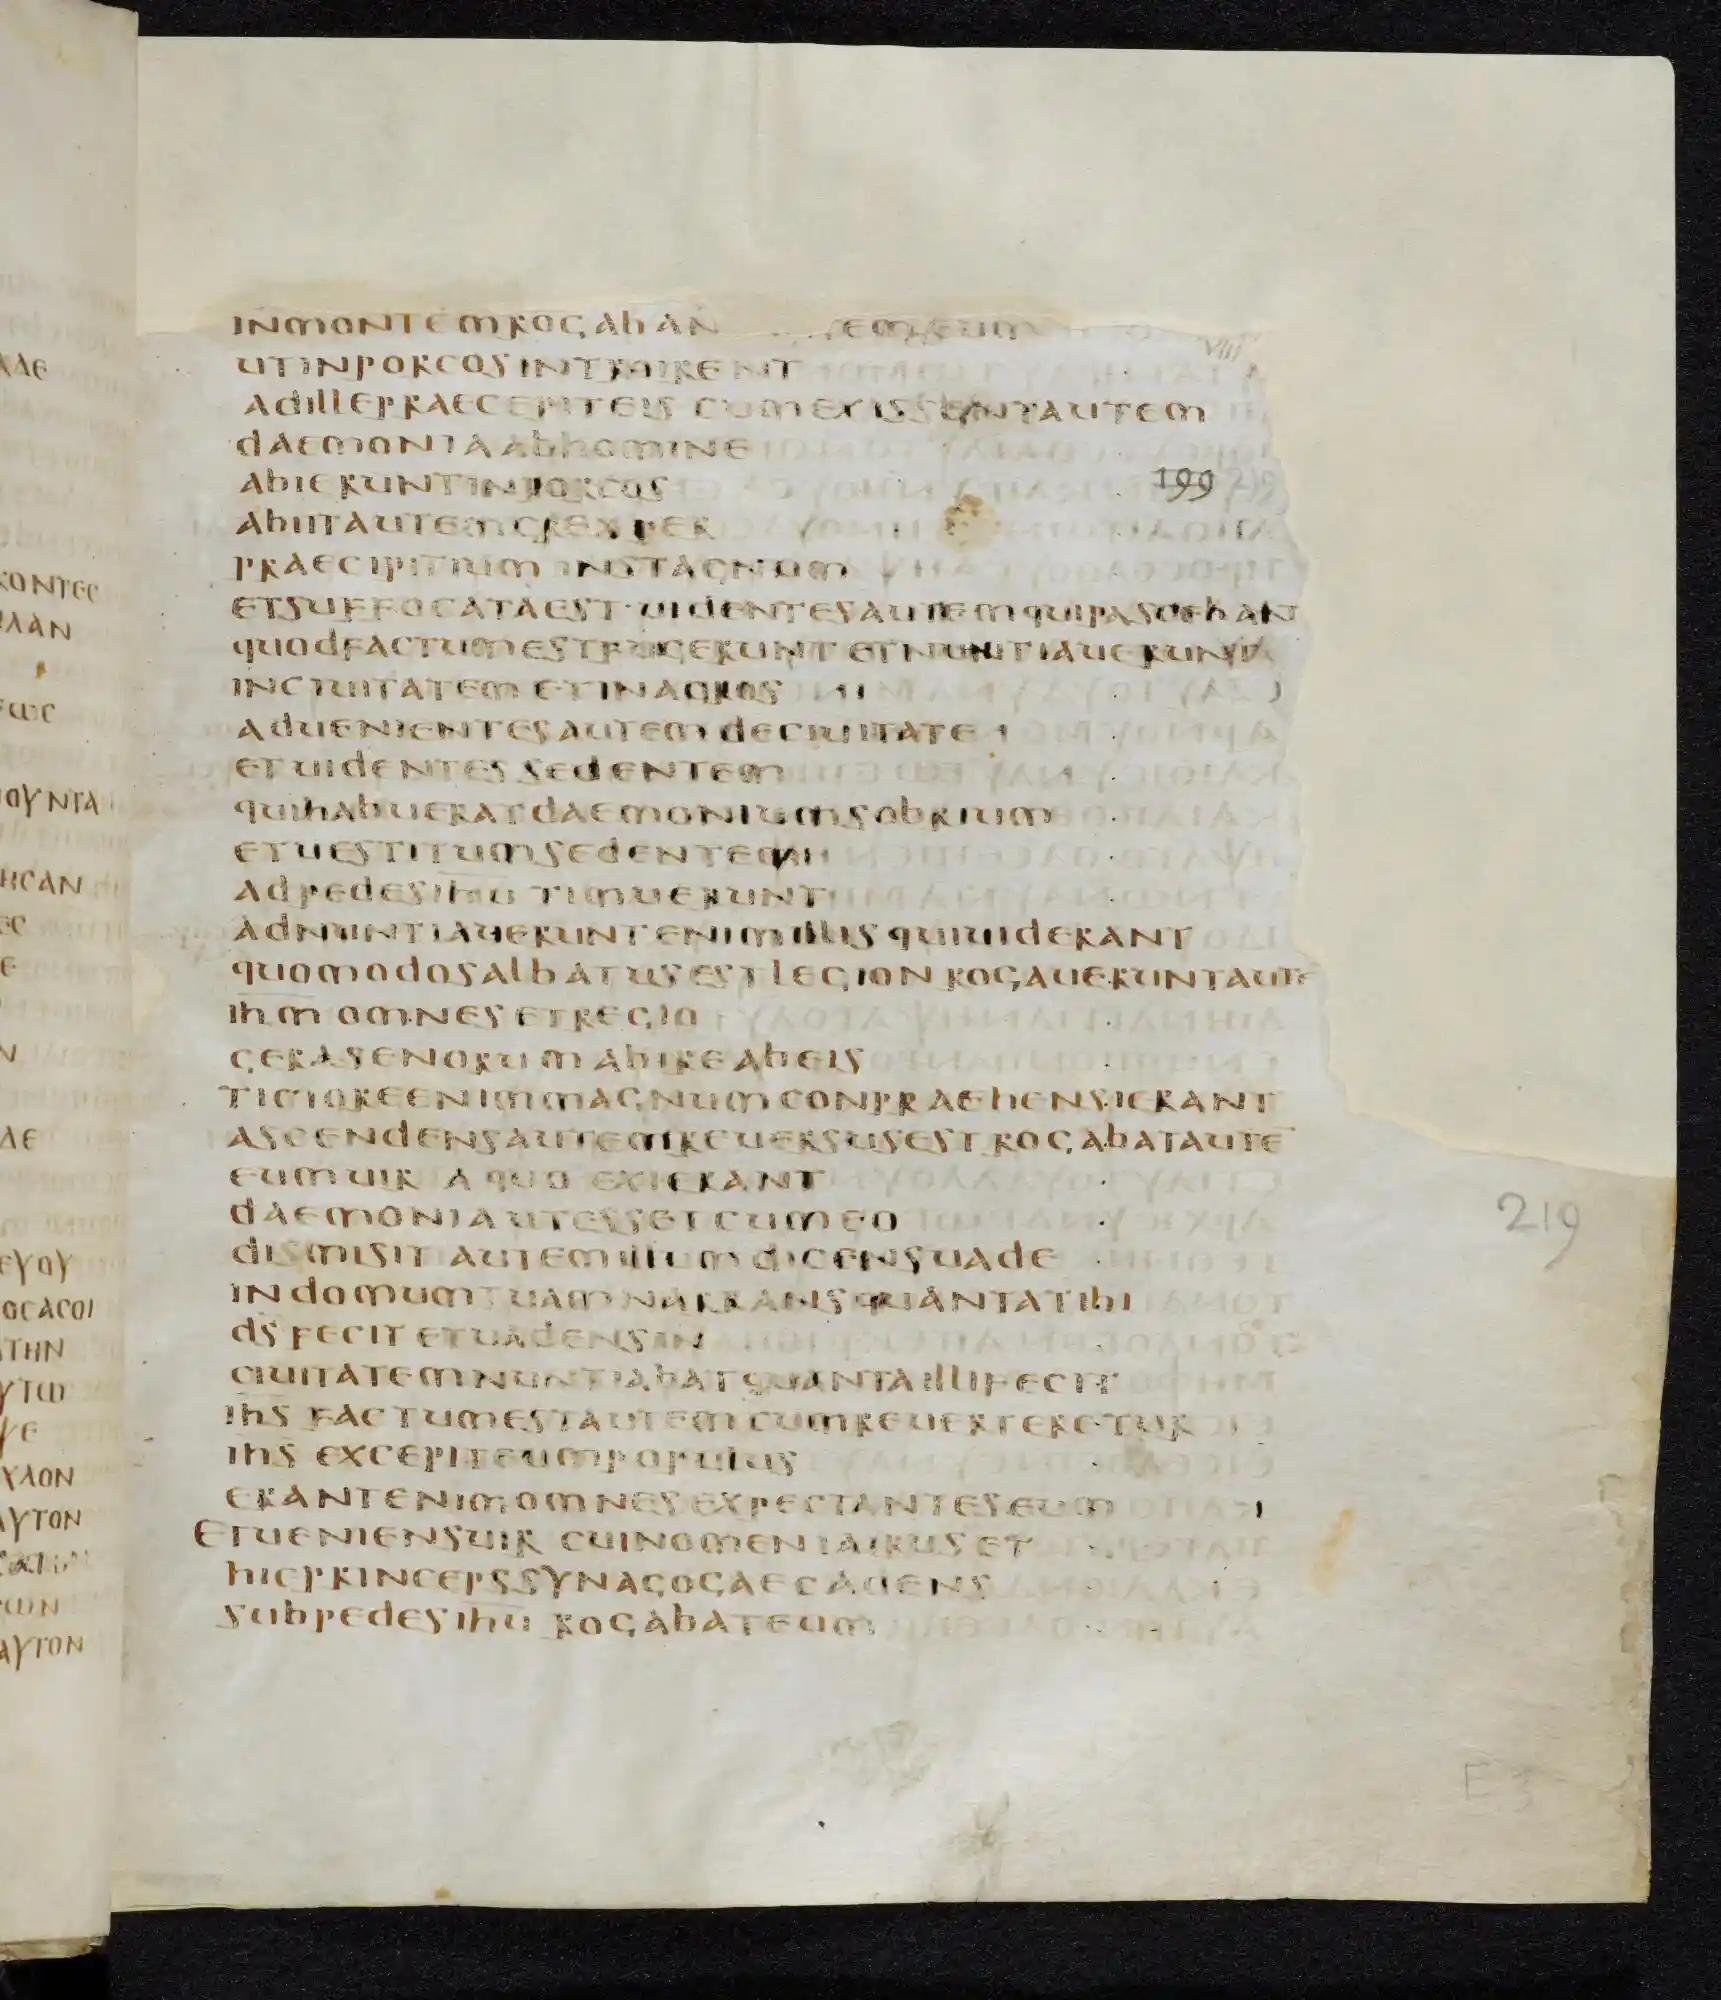 INMONTEM ROGABAN EM EUM
VIII
UTINPORCOSINTROIRENT
ADILLEPRAECEPITEIS CUMEXISSENTAUTEM
DAEMONIAABHOMINE
ABIERUNTINPORCOS
199 219
ABIITAUTEMGREXPER
PRAECIPITIUMINSTAGNUM
ETSUFFOCATAEST·UIDENTESAUTEMQUIPASCEBANT
QUODFACTUMESTFUGERUNT ETNUNTIAUERUNT
INCIUITATEM ETINAGROS
ADUENIENTESAUTEM DECIUITATE
ETUIDENTES SEDENTEM
QUIHABUERATDAEMONIUMSOBRIUM
ETUESTITUMSEDENTEM
ADPEDESIHU TIMUERUNT
ADNUNTIAUERUNTENIMILLIS QUIUIDERANT
QUOMODOSALBATUSESTLEGION ROGAUERUNTAUTE
IHM OMNESETREGIO
GERASENORUMABIREABEIS
TIMOREENIMMAGNUMCONPRAEHENSIERANT
ASCENDENSAUTEMREUERSUSEST ROGABATAUTE
EUMUIR A QUO EXIERANT
DAEMONIAUTESSETCUMEO
DISMISIT AUTEMILLUMDICENSUADE
INDOMUMTUAMNARRANSQUANTATIBI
DS FECIT ETUADENSIN
CIUITATEMNUNTIABATQUANTAILLIFECIT
IHS FACTUMESTAUTEM CUMREUERTERETUR
IHS EXCEPITEUMPOPULUS
ERANTENIMOMNESEXPECTANTESEUM
ETUENIENSUIR CUINOMENIAIRUS ET
HICPRINCEPSSYNAGOGAECADENS
SUBPEDESIHU ROGABATEUM
219
E 3
ΚΟΝΤΕС
ΛΑΝ
ΕΩС
ΟΥΝΤΑ
ΗСΑΝ
ΕС
Ε
Ν
ΔΕ
ΕΓΟΥ
ΟСΑСΟΙ
ΤΗΝ
ΥΤΩ
ΓΕ
ΧΛΟΝ
ΑΥΤΟΝ
ΡΩΝ
ΑΥΤΟΝ